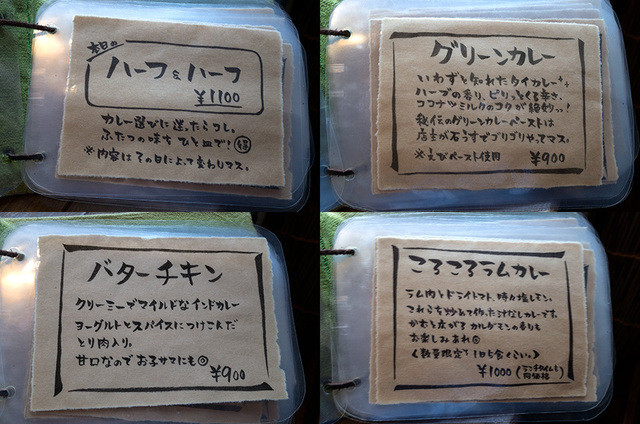 本日の
ハーフ&ハーフ
¥1100
カレー選びに迷ったらコレ。
ふたつの味を ひと皿で!
※内容はその日によって変わりマス。
グリーンカレー
いわずと知れたタイカレー
ハーブの香り、ピリッとくる辛さ、
ココナツミルクのコクが絶妙っ!
秘伝のグリーンカレーペーストは
店主が石うすでゴリゴリやってマス。
※えびペースト使用 ¥900
バターチキン
クリーミーでマイルドなインドカレー
ヨーグルトとスパイスにつけこんだ
とり肉入り。
甘口なのでお子サマにも◎
¥900
ころころラムカレー
ラム肉とドライトマト、時々塩レモン。
これらを炒めて作った汁なしカレーです。
かむと広がるカルダモンの香りも
お楽しみあれ
〈数量限定 1日5食くらい。〉
¥1000 (ランチタイムも同価格)